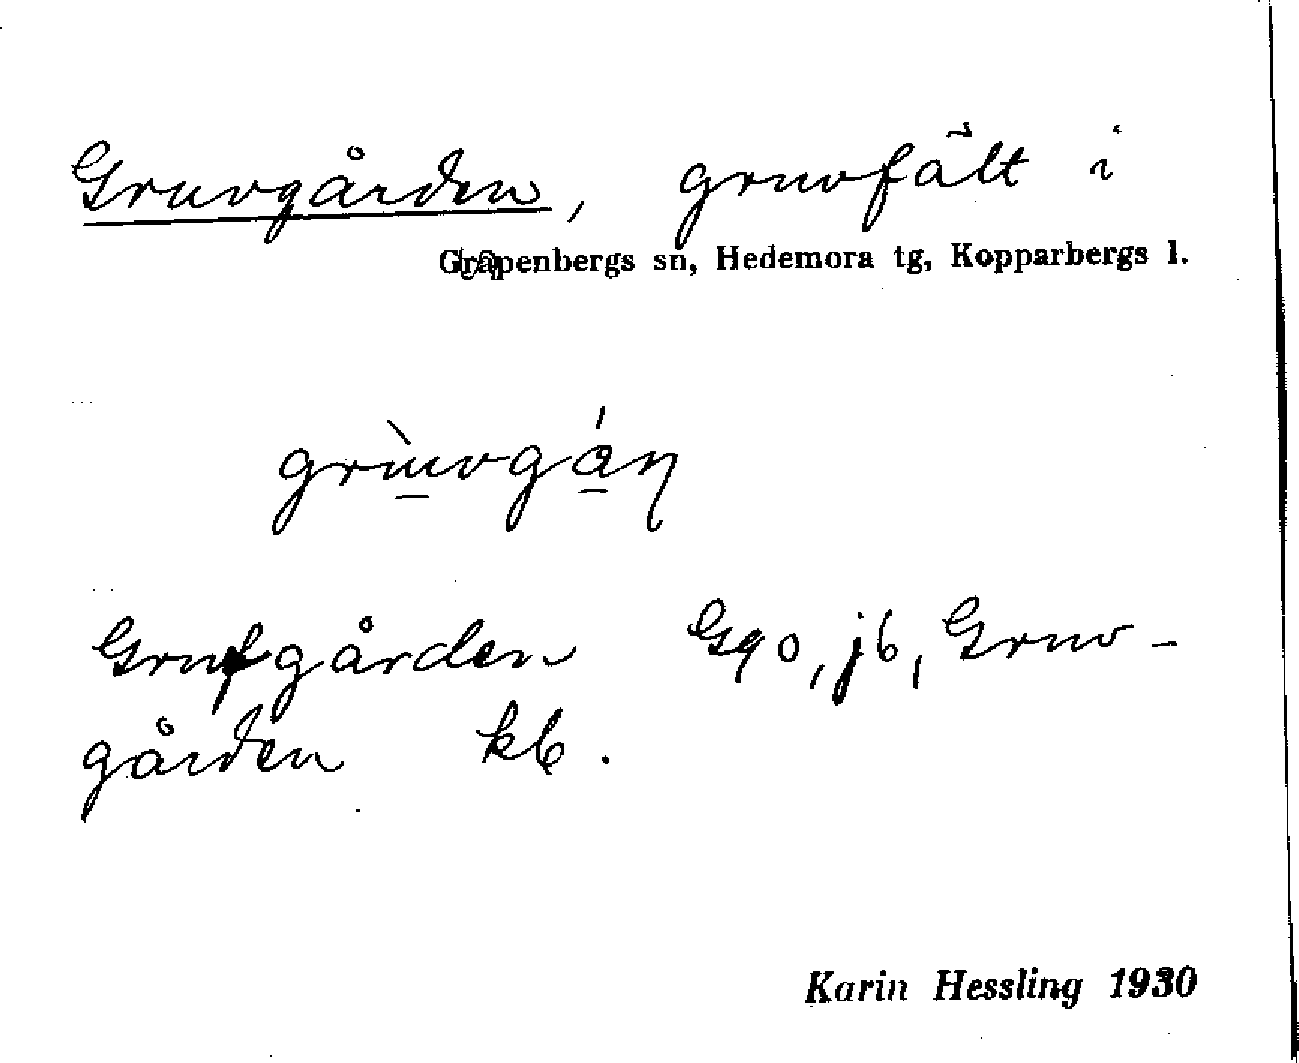 Gruvgården, gruvfält i
Garpenbergs sn, Hedemora tg, Kopparbergs l.
Grufgården Gqo, jb, Gruv-
gården kb.
Karin Hessling 1930